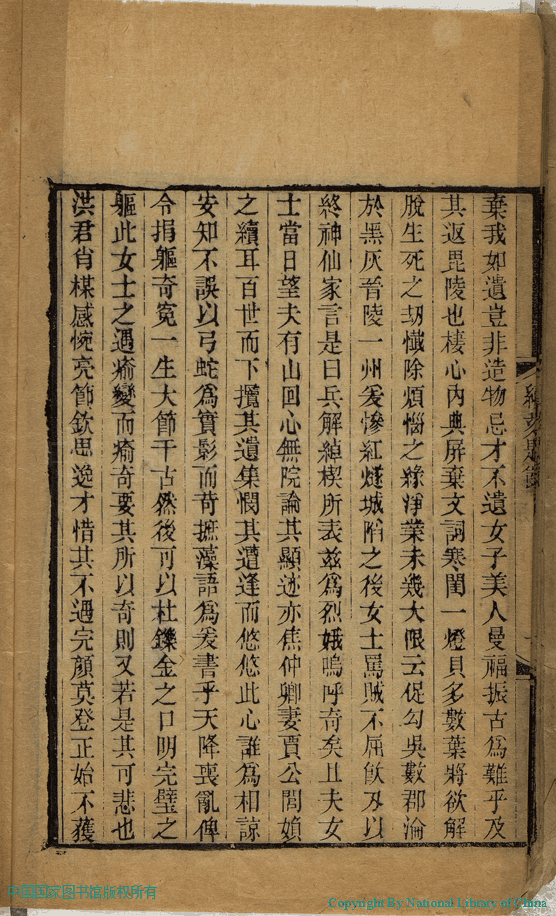 棄我如遺豈非造物忌才不遺女子美人曼福振古爲難乎及
其返毘陵也棲心內典屏棄文詞寒閨一燈貝多數葉將欲解
脫生死之劫懺除煩惱之緣淨業未幾大限云促勾吳數郡淪
於黑灰晉陵一州爰慘紅燧城陷之後女士罵賊不屈飲刃以
終神仙家言是曰兵解綽楔所表茲爲烈娥嗚呼奇矣且夫女
士當日望夫有山回心無院論其顯迹亦焦仲卿妻賈公閭嬪
之續耳百世而下攬其遺集憫其遭逢而悠悠此心誰爲相諒
安知不誤以弓蛇爲實影而苛摭藻語爲爰書乎天降喪亂俾
令捐軀奇冤一生大節千古然後可以杜鑠金之口明完璧之
軀此女士之遇癒變而癒奇要其所以奇則又若是其可悲也
洪君肖楳感惋亮節欽思逸才惜其不遇完顏莫登正始不獲
中国国家图书馆版权所有
Copyright By National Library of China